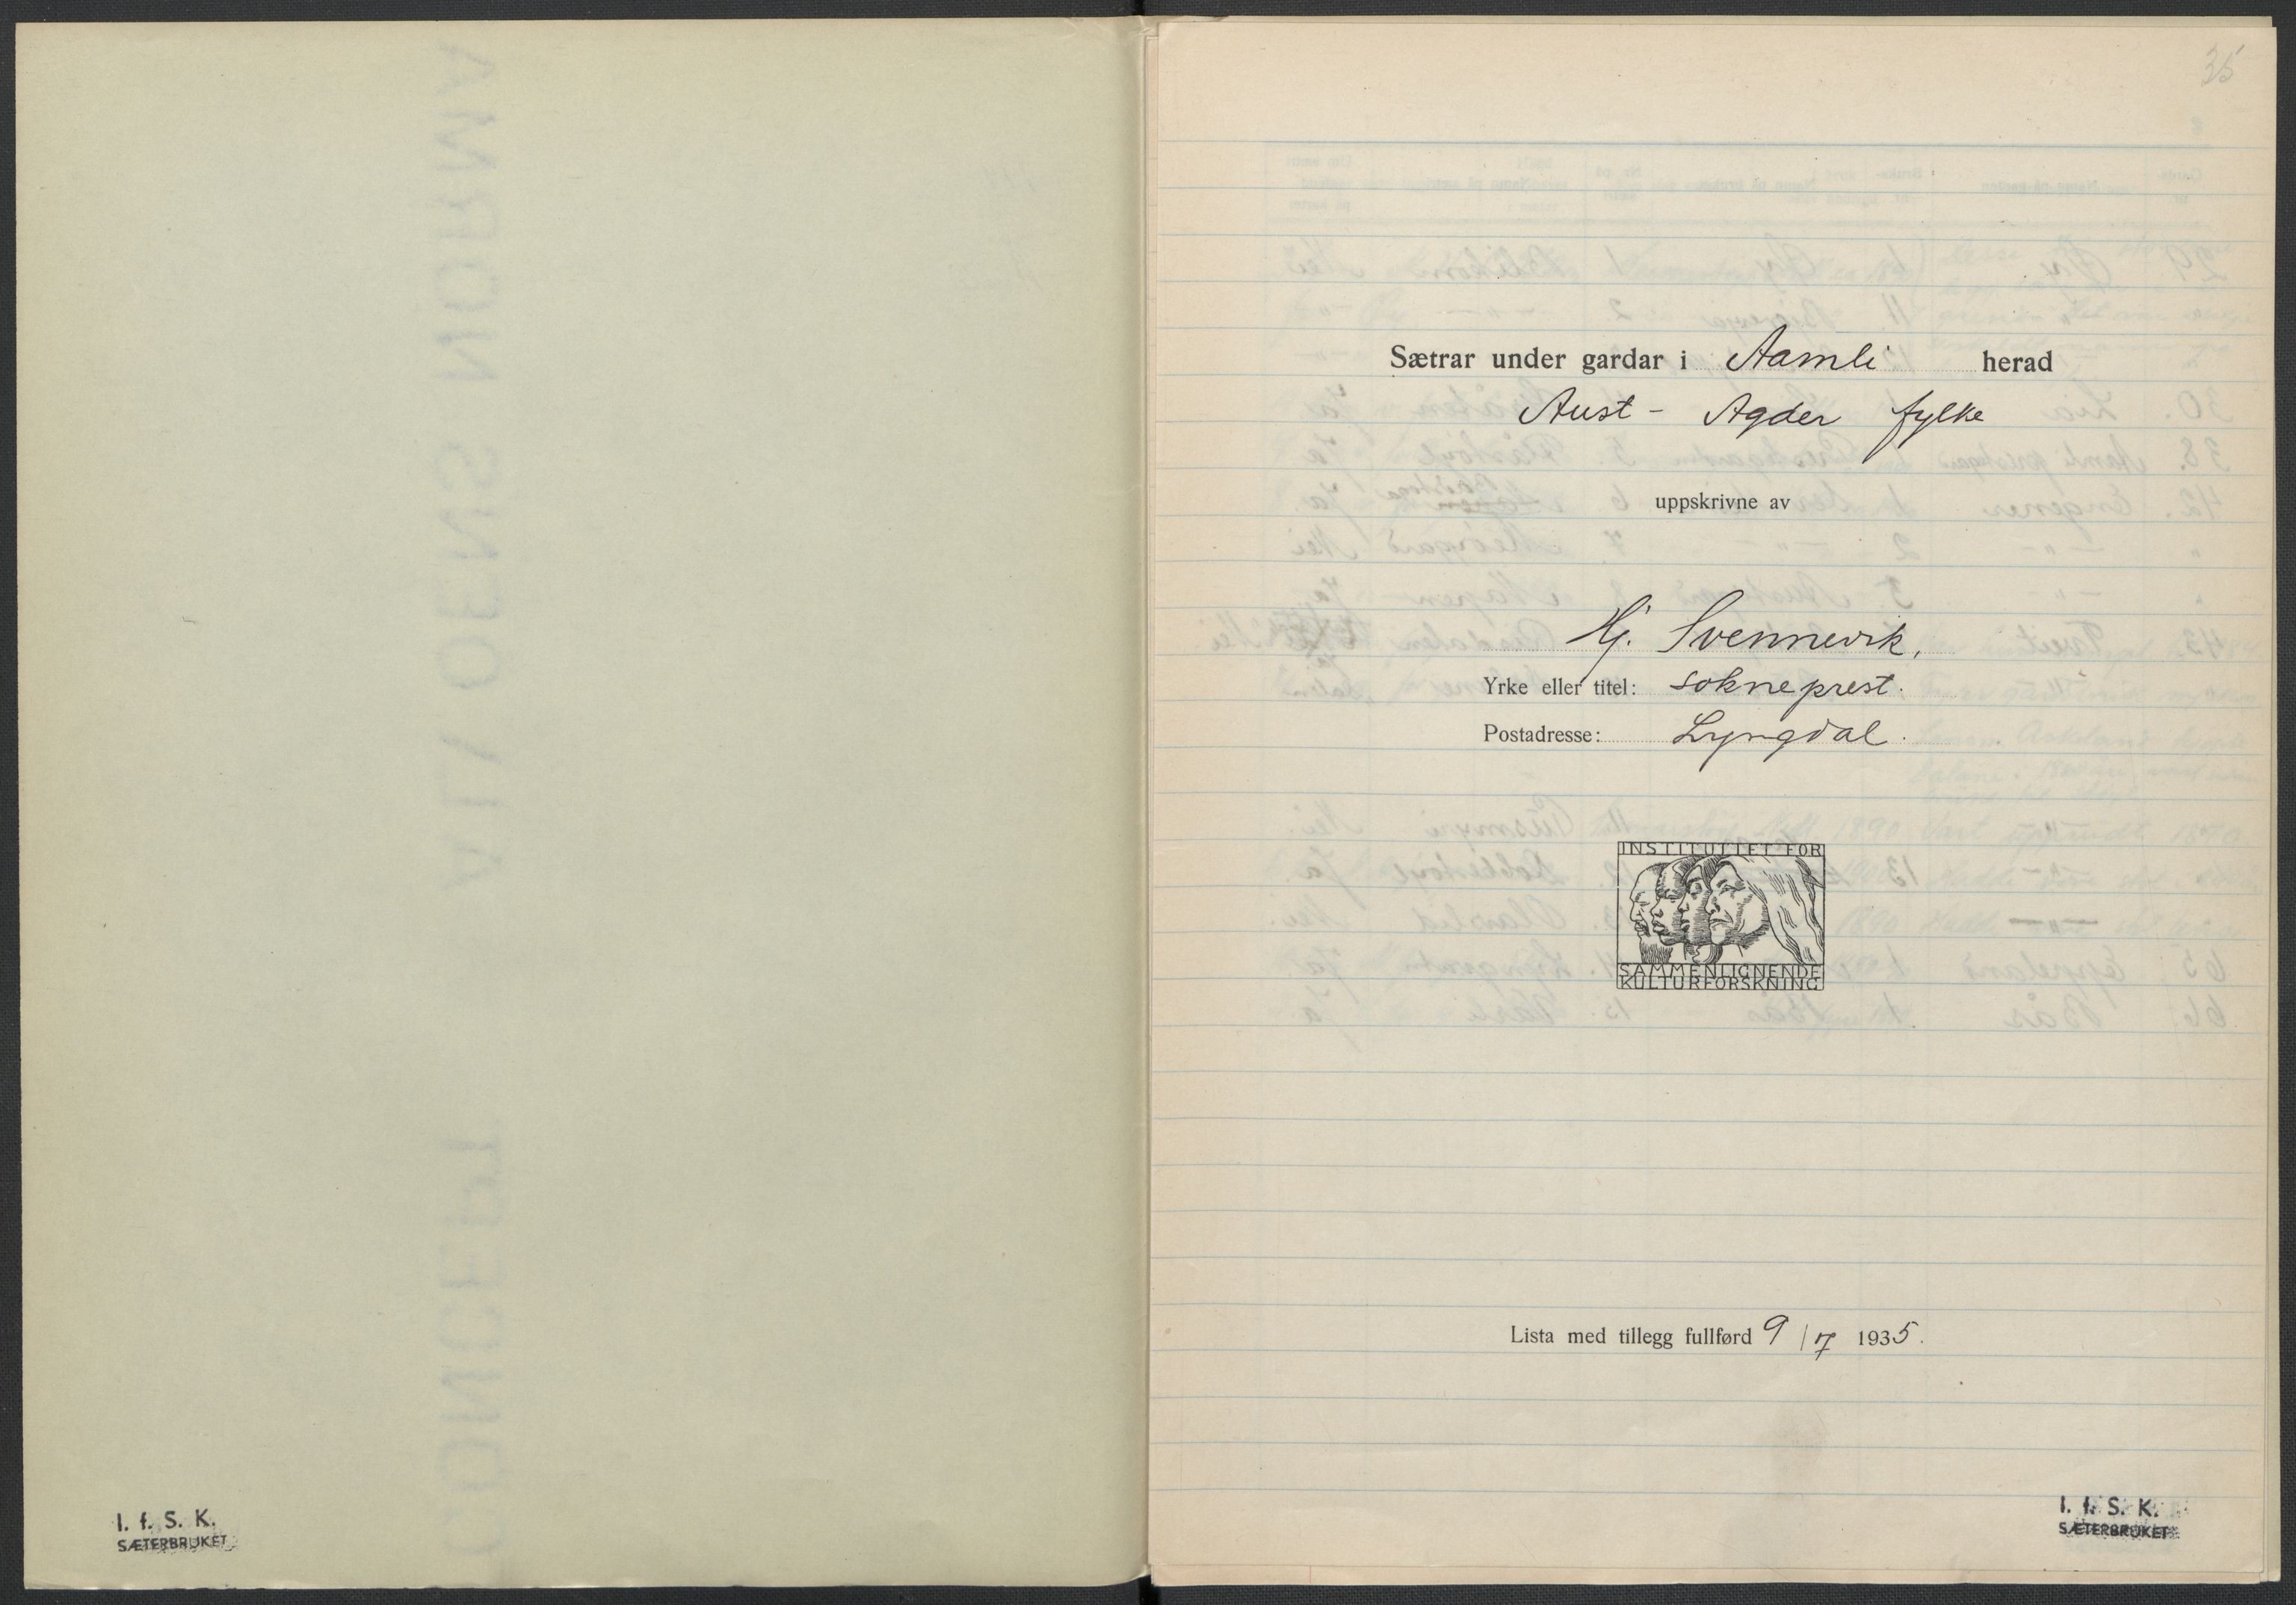 35
Sætrar under gardar i Aamli herad
Aust - Agder fylke
uppskrivne av
Hj. Svennevik,
Yrke eller titel: sokneprest.
Postadresse: Lyngdal.
INSTITUTTET FOR
SAMMENLIGNENDE
KULTURFORSKNING
Lista med tillegg fullførd 9/7 1935.
I. f. S. K.
SÆTERBRUKET
I. f. S. K.
SÆTERBRUKET